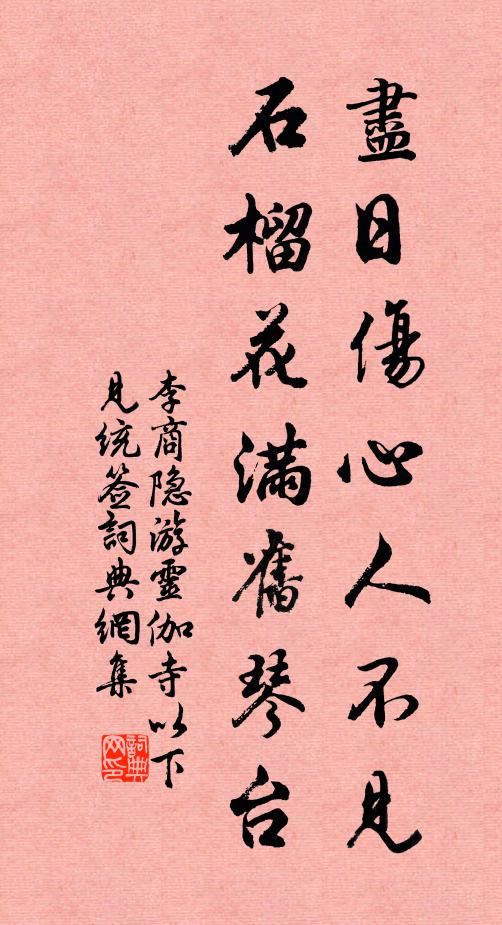 盡日傷心人不見
石榴花滿舊琴台
李商隐游靈伽寺以下
見統签詞典網集
詞典
网印